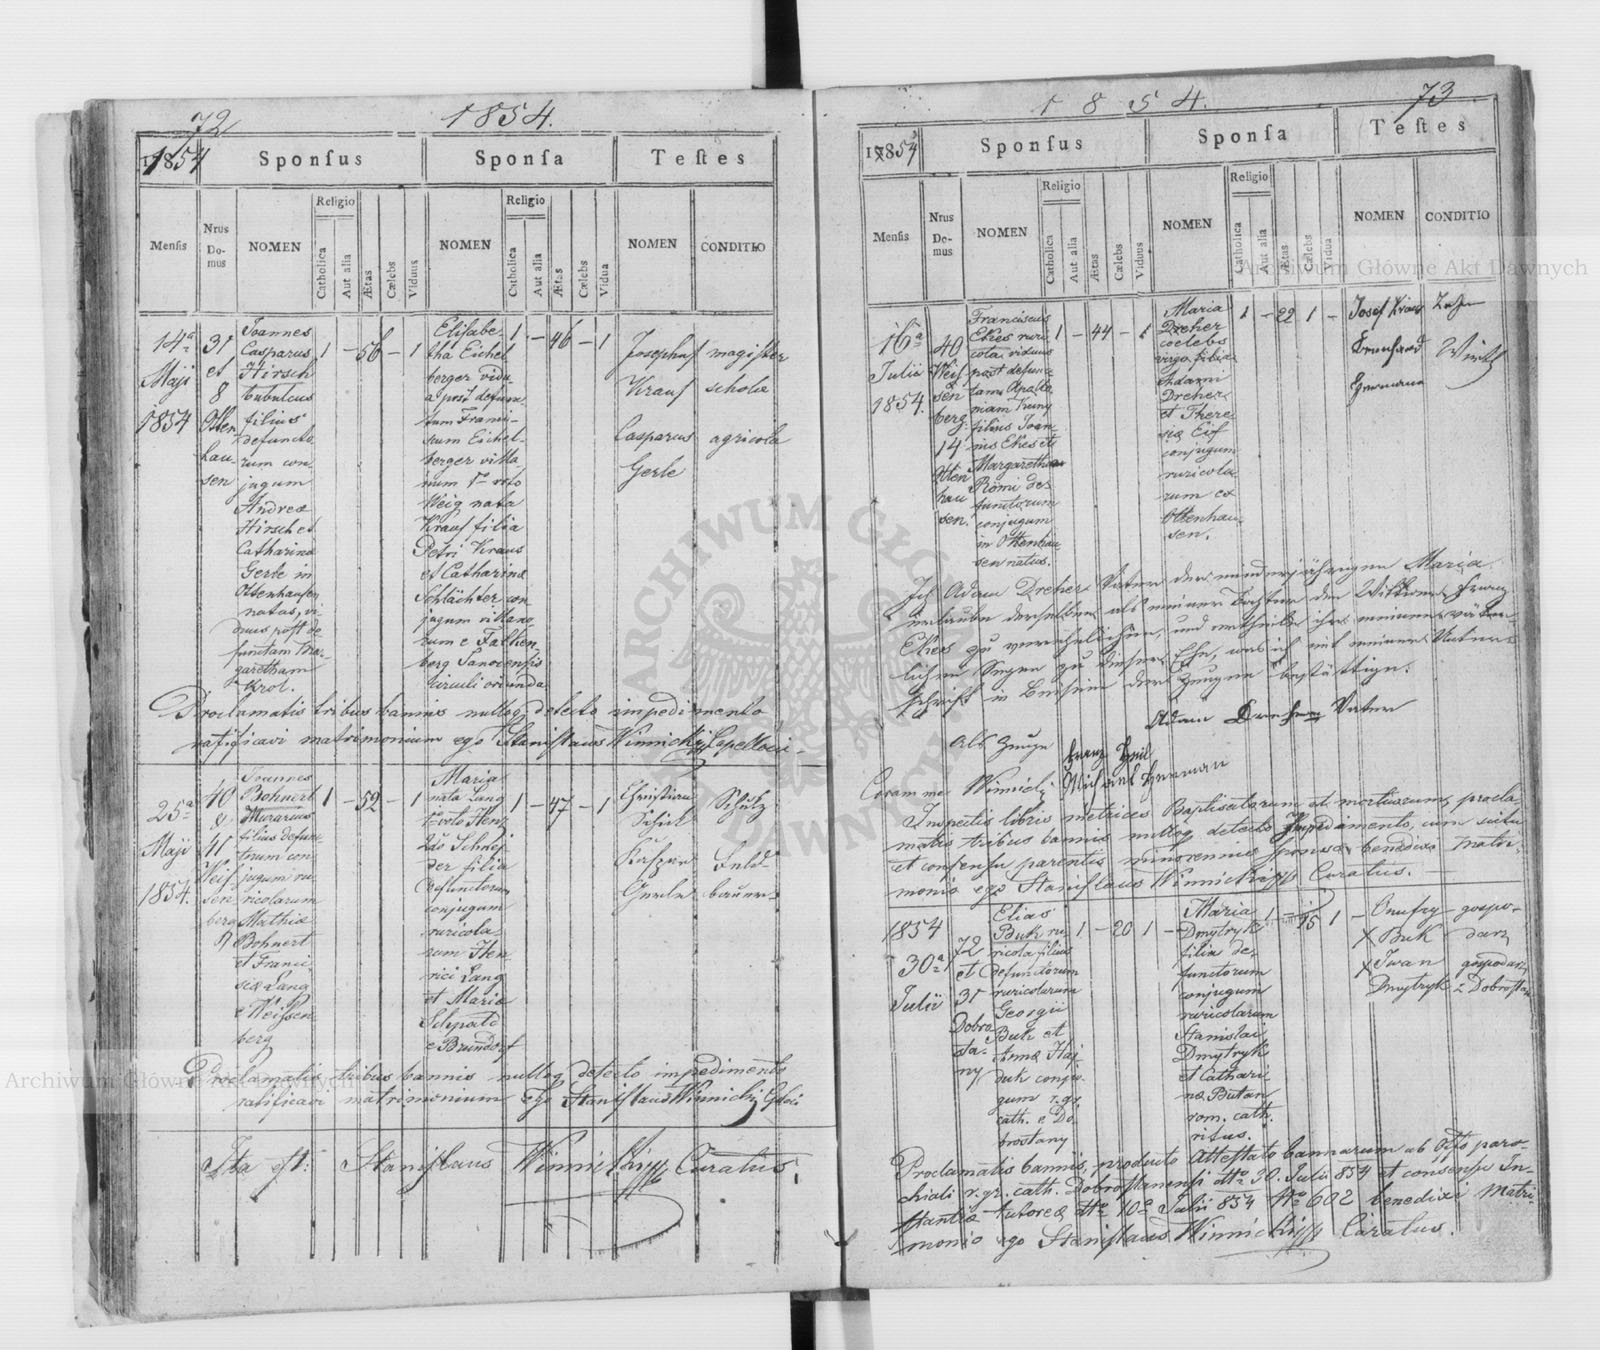 72
1854.
1854
Sponſus
Sponſa
Teſtes
Menſis
Nrus Do-mus
NOMEN
Religio
Catholica
Aut alia
Ætas
Cælebs
Viduus
NOMEN
Religio
Catholica
Aut alia
Ætas
Cælebs
Vidua
NOMEN
CONDITIO
14ª
Maji
1854
31
et
8
Otten
hau-
sen
Joannes
Casparus
Hirsch
bubulcus
filius
defuncto
rum con
jugum
Andreæ
Hirsch et
Catharinæ
Gerle in
Ottenhausen
natus, vi
duus post de
functam Mar
garetham
Grol.
1 – 56 – 1
Elisabe
tha Eichel
berger vidu
a post defunc
tum Franci-
scum Eichel-
berger villa
num 1º voto
Weig nata
Kraus filia
Petri Kraus
et Catharinæ
Schlächter con
jugum villano
rum e Falken
berg Sanocensis
circuli oriunda
1 – 46 – 1
Josephus magister
Kraus scholæ
Casparus agricola
Gerle
Proclamatis tribus bannis nulloq detecto impedimento
ratificavi matrimonium ego Stanislaus Winnicki
25ª
Maji
1854.
40
&
41
Weis
sen
berg
Joannes
Bohnert
Murarius
filius defunc
torum con
jugum ru
ricolarum
Mathiæ
Bohnert
et Franci
scæ Lang
e Weissen
berg
1 – 52 – 1
Maria
nata Lang
1 voto Henz
2do Schnei
der filia
defunctorum
conjugum
ruricola
rum Hen
rici Lang
et Mariæ
e Brundorf
1 – 47 – 1
Christian Schulz
Schick
Kaspar Feld
Gerle bauer
Proclamatis tribus bannis nulloq detecto impedimento
ratificavi matrimonium Ego Stanislaus Winnicki
Ita est: Stanislaus Winnicki Curatus.
1854.
73
1854
Sponſus
Sponſa
Teſtes
Menſis
Nrus De-mus
NOMEN
Religio
Catholica
Aut alia
Ætas
Cælebs
Viduus
NOMEN
Religio
Catholica
Aut alia
Ætas
Cælebs
Vidua
NOMEN
CONDITIO
16ª
Julii
1854.
40
Weis
sen
berg.
14
Otten
hau
sen.
Franciscus
Ekes ruri
cola viduus
post defunc
tam Apollo
niam Kuny
filius Joan
nis Ekes et
Margarethæ
Römi de
functorum
conjugum
in Ottenhau
sen natus.
1 – 44 – 1
Maria
Dreher
coelebs
virgo filia
Adami
Dreher
et There
siæ Eis
conjugum
ruricola
rum ex
Ottenhau
sen.
1 – 22 1 –
Josef Kraus
Bernhard Wirth
Hermann
Ich Adam Dreher Vater der minderjährigen Maria
erlaube derselben als meiner Tochter den Wittwer Franz
Ekes zu verehelichen, und ertheile ihr meinen väter-
lichen Segen zu dieser Ehe, was ich mit meiner Unter-
schrift in Beisein der Zeugen bestättige.
Adam Dreher Vater
Als Zeuge Franz
Coram me Winnicki Michael Herman
Inspectis libris metrices Baptisatorum et mortuorum, procla-
matis tribus bannis nulloq detecto impedimento, cum scitu
et consensu parentis minorennis sponsæ benedixi matri-
monio ego Stanislaus Winnicki Curatus.
1854
30ª
Julii
72
et
31
Dobro
sta-
ny
Elias
Buk ru
ricola filius
defunctorum
ruricolarum
Georgii
Buk et
Annæ Haj
duk conju
gum r. gr.
cath. e Do
brostany
1 – 20 1 –
Maria
Dmytryk
filia de
functorum
conjugum
ruricolarum
Stanislai
Dmytryk
et Cathari
næ Butan
rom. cath.
ritus.
1 – 15 1 –
Onufry gospo-
X Buk darz
X Iwan gospodarz
Dmytryk z Dobrostan
Proclamatis bannis, producto Attestato bannorum ab Offo paro-
chiali r. gr. cath. Dobrostanensi dtto 30. Julii 854 et consensu In-
stantiæ tutoreæ dtto 10ª Julii 854 No 602 benedixi Matri-
monio ego Stanislaus Winnicki Curatus.
Archiwum Główne Akt Dawnych
Archiwum Główne Akt Dawnych
ARCHIWUM GŁÓWNE AKT DAWNYCH